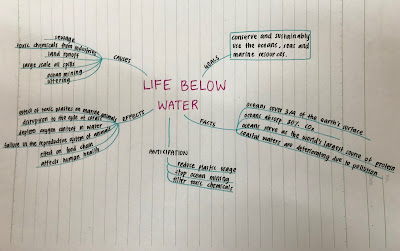 LIFE BELOW
WATER
CAUSES
sewage
toxic chemicals from industries
land runoff
large scale oil spills
ocean mining
littering
GOALS
conserve and sustainably
use the oceans, seas and
marine resources.
EFFECTS
effect of toxic wastes on marine animals
disruption to the cycle of corals
deplets oxygen content in water
failure in the reproductive system of animals
effect on food chain
affects human health
FACTS
oceans cover 3/4 of the earth's surface
oceans absorb 30% CO2
oceans serve as the world's largest source of protein
coastal waters are deteriorating due to pollution
ANTICIPATION
reduce plastic usage
stop ocean mining
filter toxic chemicals